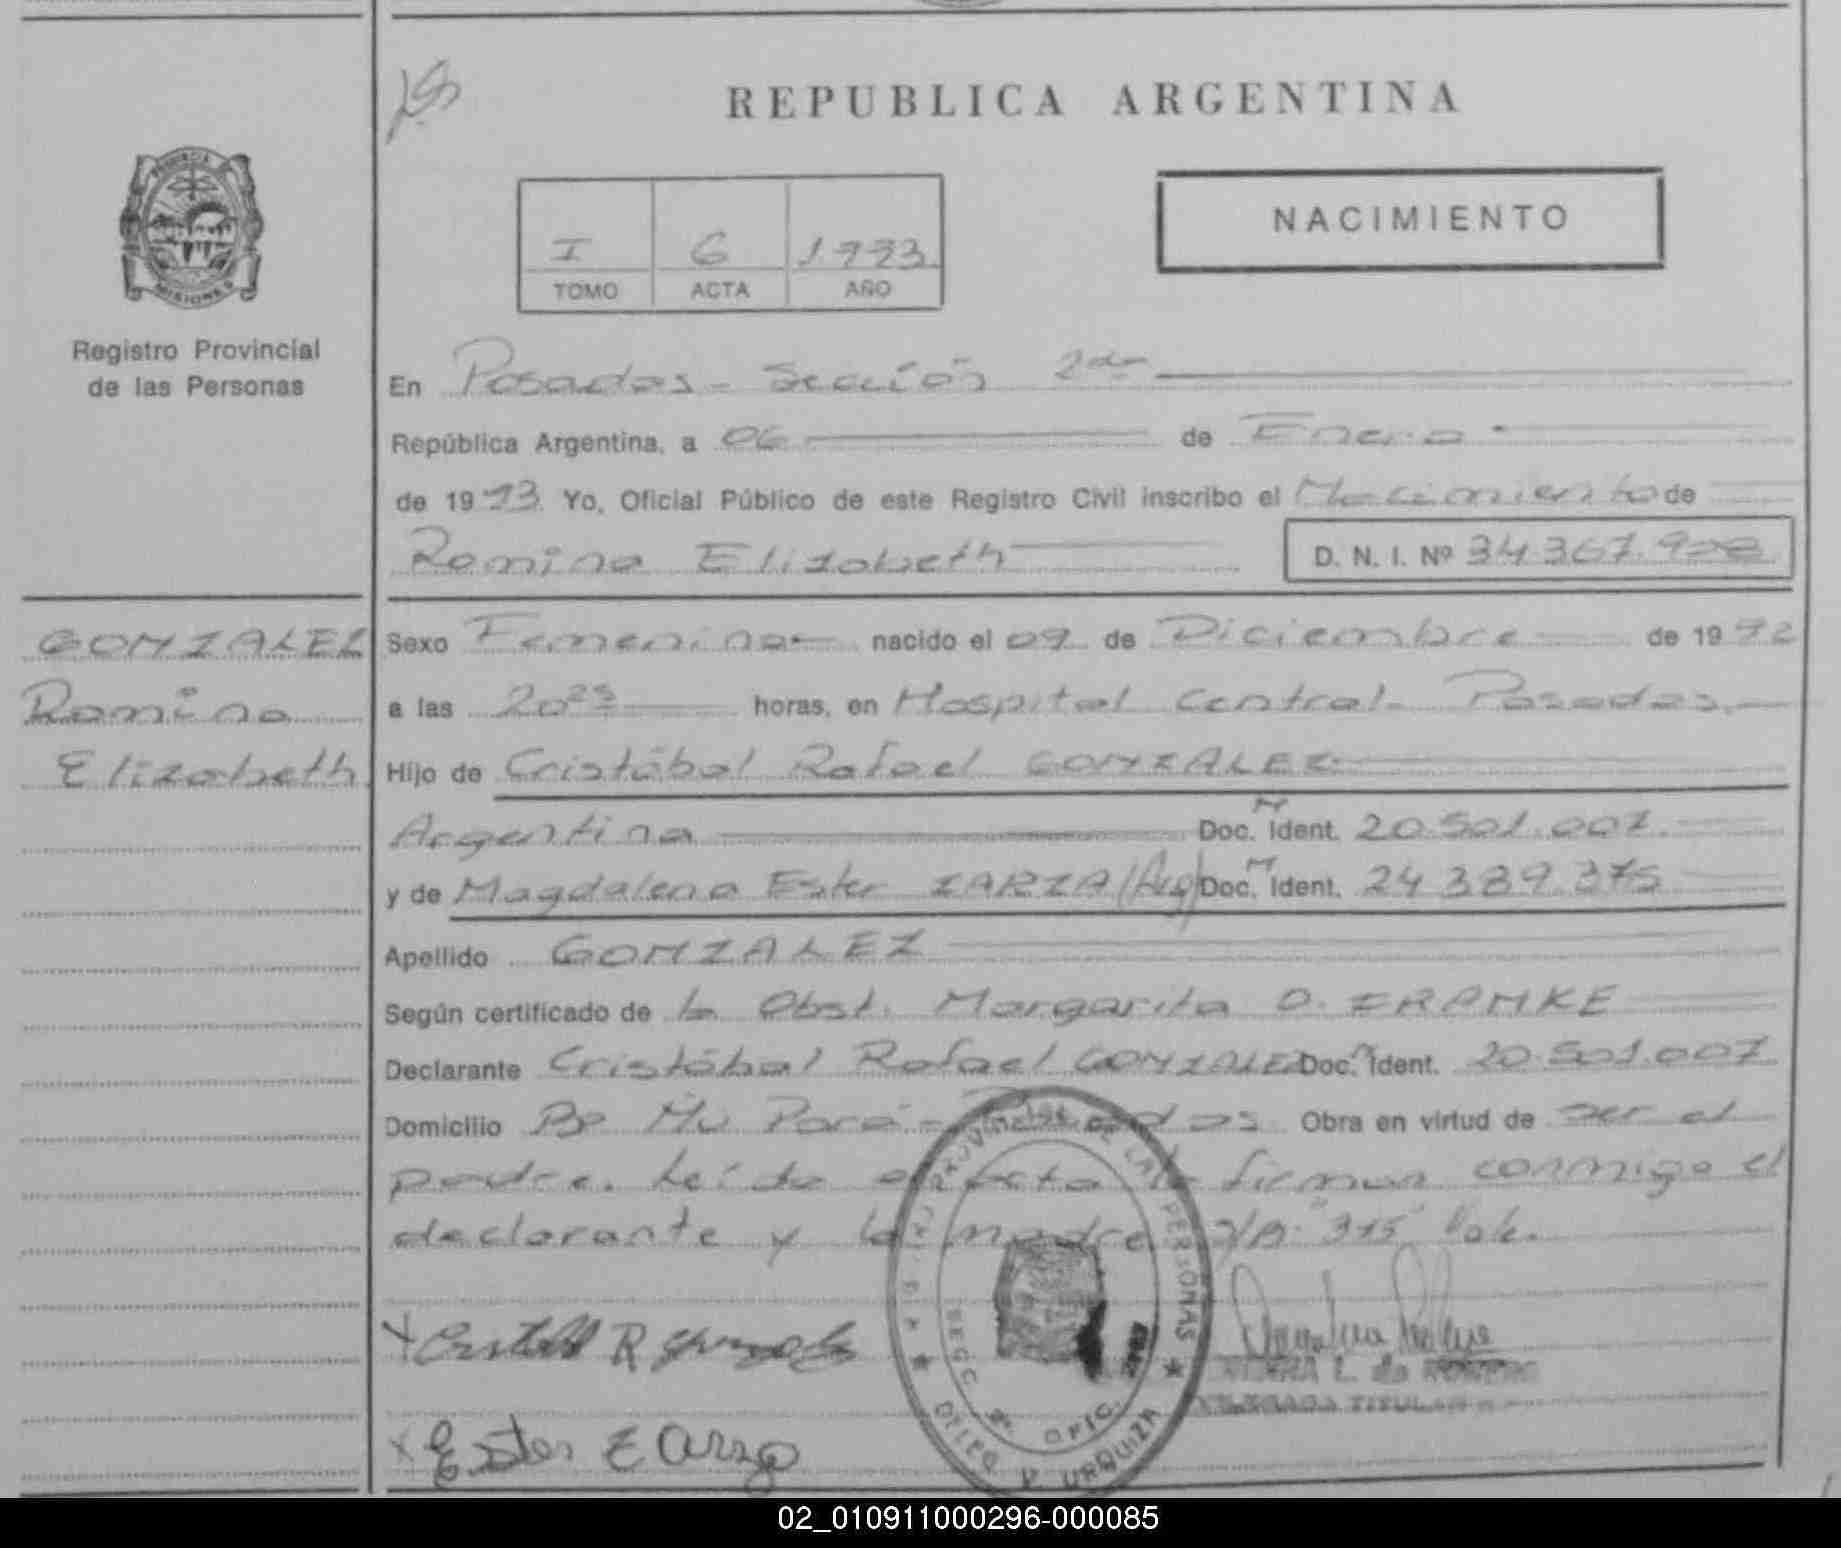 REPUBLICA ARGENTINA
PROVINCIA
MISIONES
Registro Provincial
de las Personas
NACIMIENTO
I 6 1993
TOMO ACTA AÑO
En Posadas - Sección 2da
República Argentina, a 06 de Enero
de 1993. Yo, Oficial Público de este Registro Civil inscribo el Nacimiento de
Romina Elizabeth D. N. I. Nº 34.367.908
GONZALEZ
Romina
Elizabeth
Sexo Femenino nacido el 09 de Diciembre de 1992
a las 20 25 horas, en Hospital Central - Posadas.
Hijo de Cristóbal Rafael GONZALEZ
Argentina Doc. Ident. 20.501.007
y de Magdalena Ester ZARZA (Arg) Doc. Ident. 24.389.375
Apellido GONZALEZ
Según certificado de la Obst. Margarita O.
Declarante Cristóbal Rafael GONZALEZ Doc. Ident. 20.501.007
Domicilio Bº Posadas Obra en virtud de ser el
padre. Leída el acta la firman conmigo el
declarante y la madre. S/B. "375" Vale.
REG. PROVINCIAL DE LAS PERSONAS
SECC. 2ª OFIC.
URQUIZA
L. de
TITULAR
02_010911000296-000085